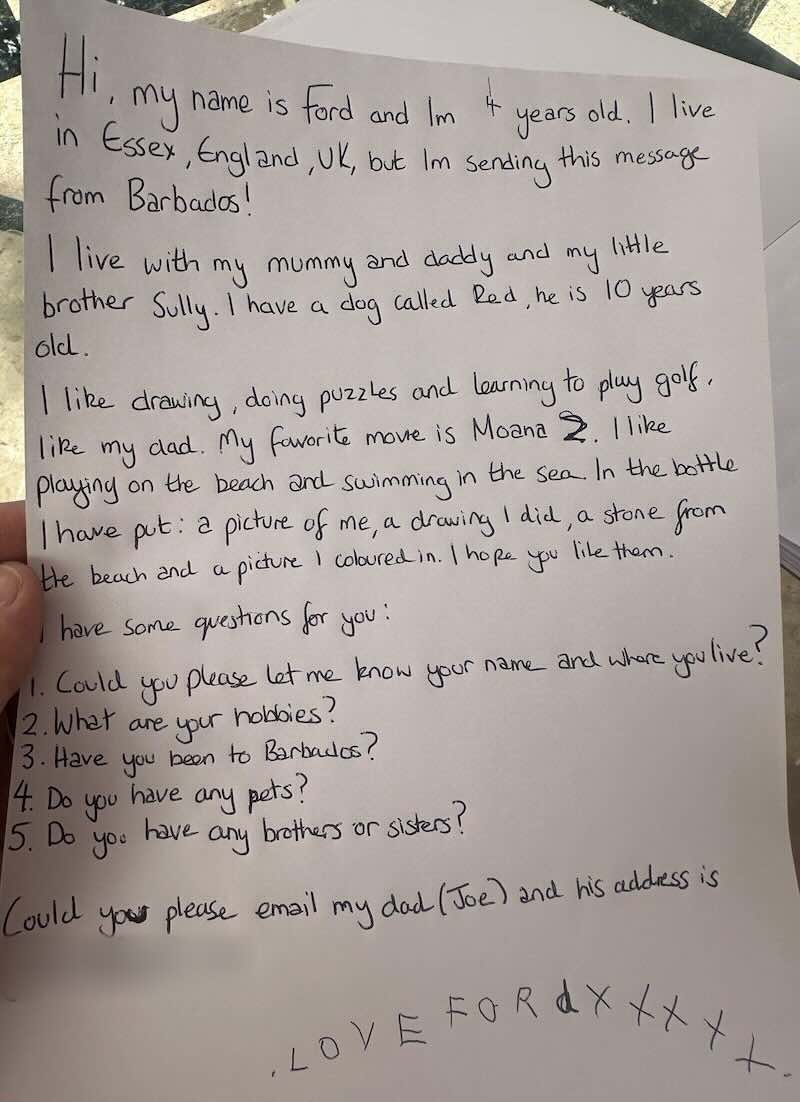 Hi, my name is Ford and Im 4 years old. I live
in Essex, England, UK, but Im sending this message
from Barbados!
I live with my mummy and daddy and my little
brother Sully. I have a dog called Red, he is 10 years
old.
I like drawing, doing puzzles and learning to play golf,
like my dad. My favorite movie is Moana 2. I like
playing on the beach and swimming in the sea. In the bottle
I have put: a picture of me, a drawing I did, a stone from
the beach and a picture I coloured in. I hope you like them.
I have some questions for you:
1. Could you please let me know your name and where you live?
2. What are your hobbies?
3. Have you been to Barbados?
4. Do you have any pets?
5. Do you have any brothers or sisters?
Could you please email my dad (Joe) and his address is
. LOVE FORd XXXXX.